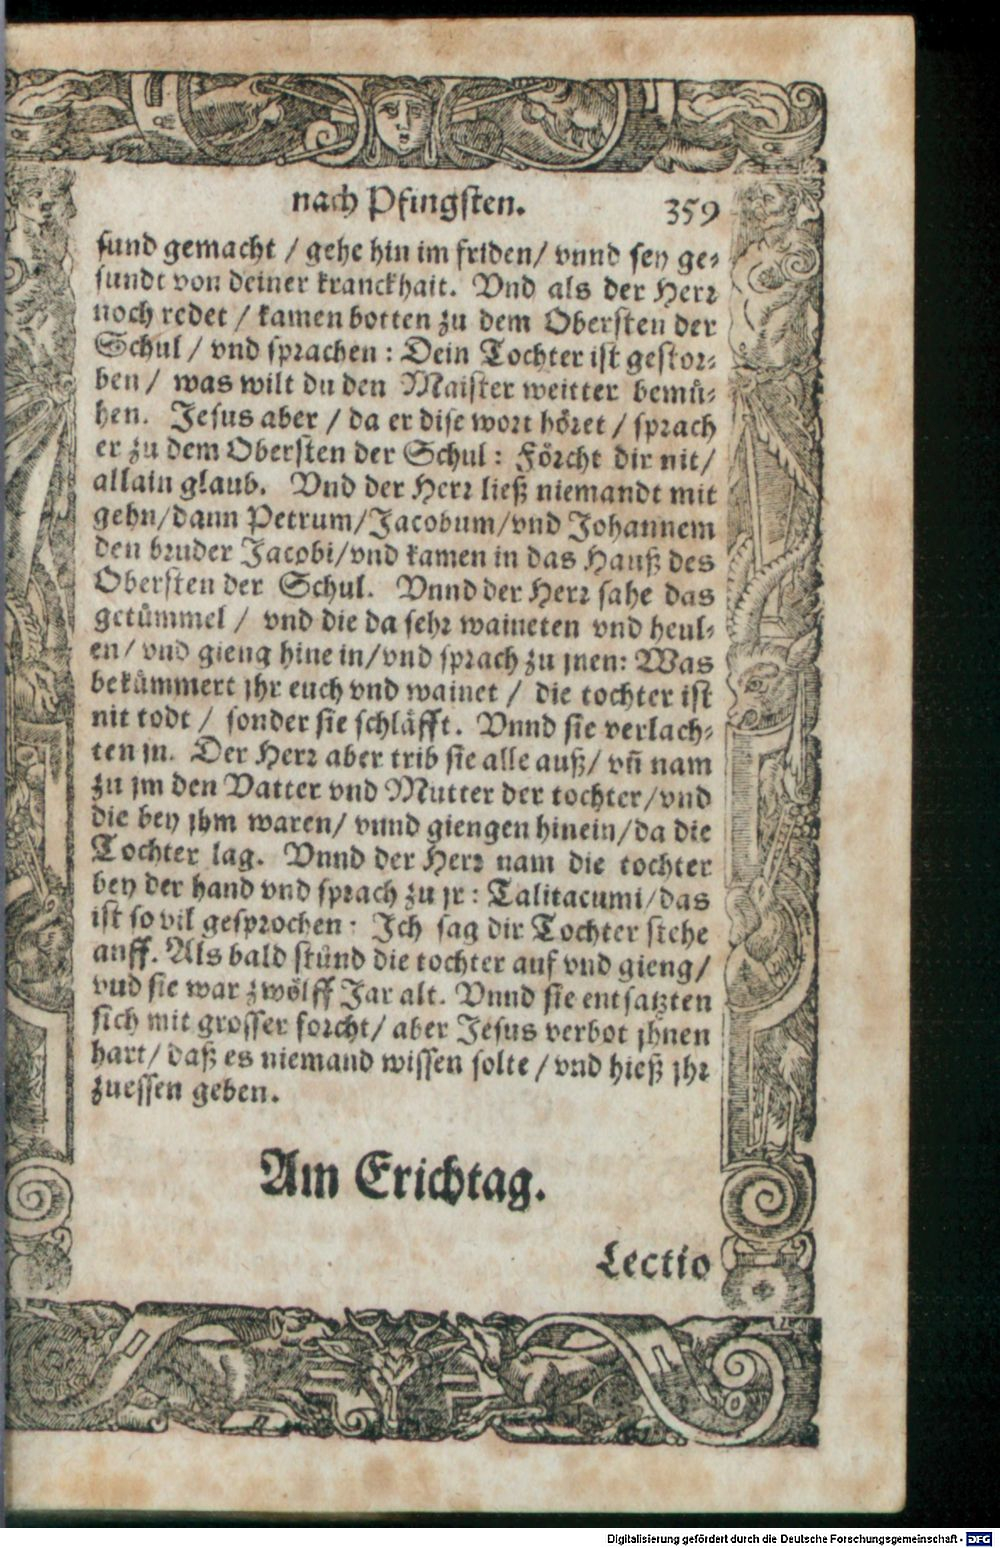 nach Pfingsten. 359
sund gemacht / gehe hin im friden/ vnnd sey ge⸗
sundt von deiner kranckhait. Vnd als der Herr
noch redet / kamen botten zu dem Obersten der
Schul / vnd sprachen : Dein Tochter ist gestor⸗
ben / was wilt du den Maister weitter bemü⸗
hen. Jesus aber / da er dise wort höret / sprach
er zu dem Obersten der Schul : Förcht dir nit/
allain glaub. Vnd der Herr ließ niemandt mit
gehn/dann Petrum/Jacobum/vnd Johannem
den bruder Jacobi/vnd kamen in das Hauß des
Obersten der Schul. Vnnd der Herr sahe das
getümmel / vnd die da sehr waineten vnd heul⸗
en/ vnd gieng hinein/vnd sprach zu jnen: Was
bekümmert jhr euch vnd wainet / die tochter ist
nit todt / sonder sie schläfft. Vnnd sie verlach⸗
ten jn. Der Herr aber trib sie alle auß/ vñ nam
zu jm den Vatter vnd Mutter der tochter/vnd
die bey jhm waren/ vnnd giengen hinein/da die
Tochter lag. Vnnd der Herr nam die tochter
bey der hand vnd sprach zu jr : Talitacumi/das
ist so vil gesprochen : Ich sag dir Tochter stehe
auff. Als bald stůnd die tochter auf vnd gieng/
vnd sie war zwölff Jar alt. Vnnd sie entsatzten
sich mit grosser forcht/ aber Jesus verbot jhnen
hart/ daß es niemand wissen solte / vnd hieß jhr
zuessen geben.
Am Erichtag.
Lectio
Digitalisierung gefördert durch die Deutsche Forschungsgemeinschaft - DFG